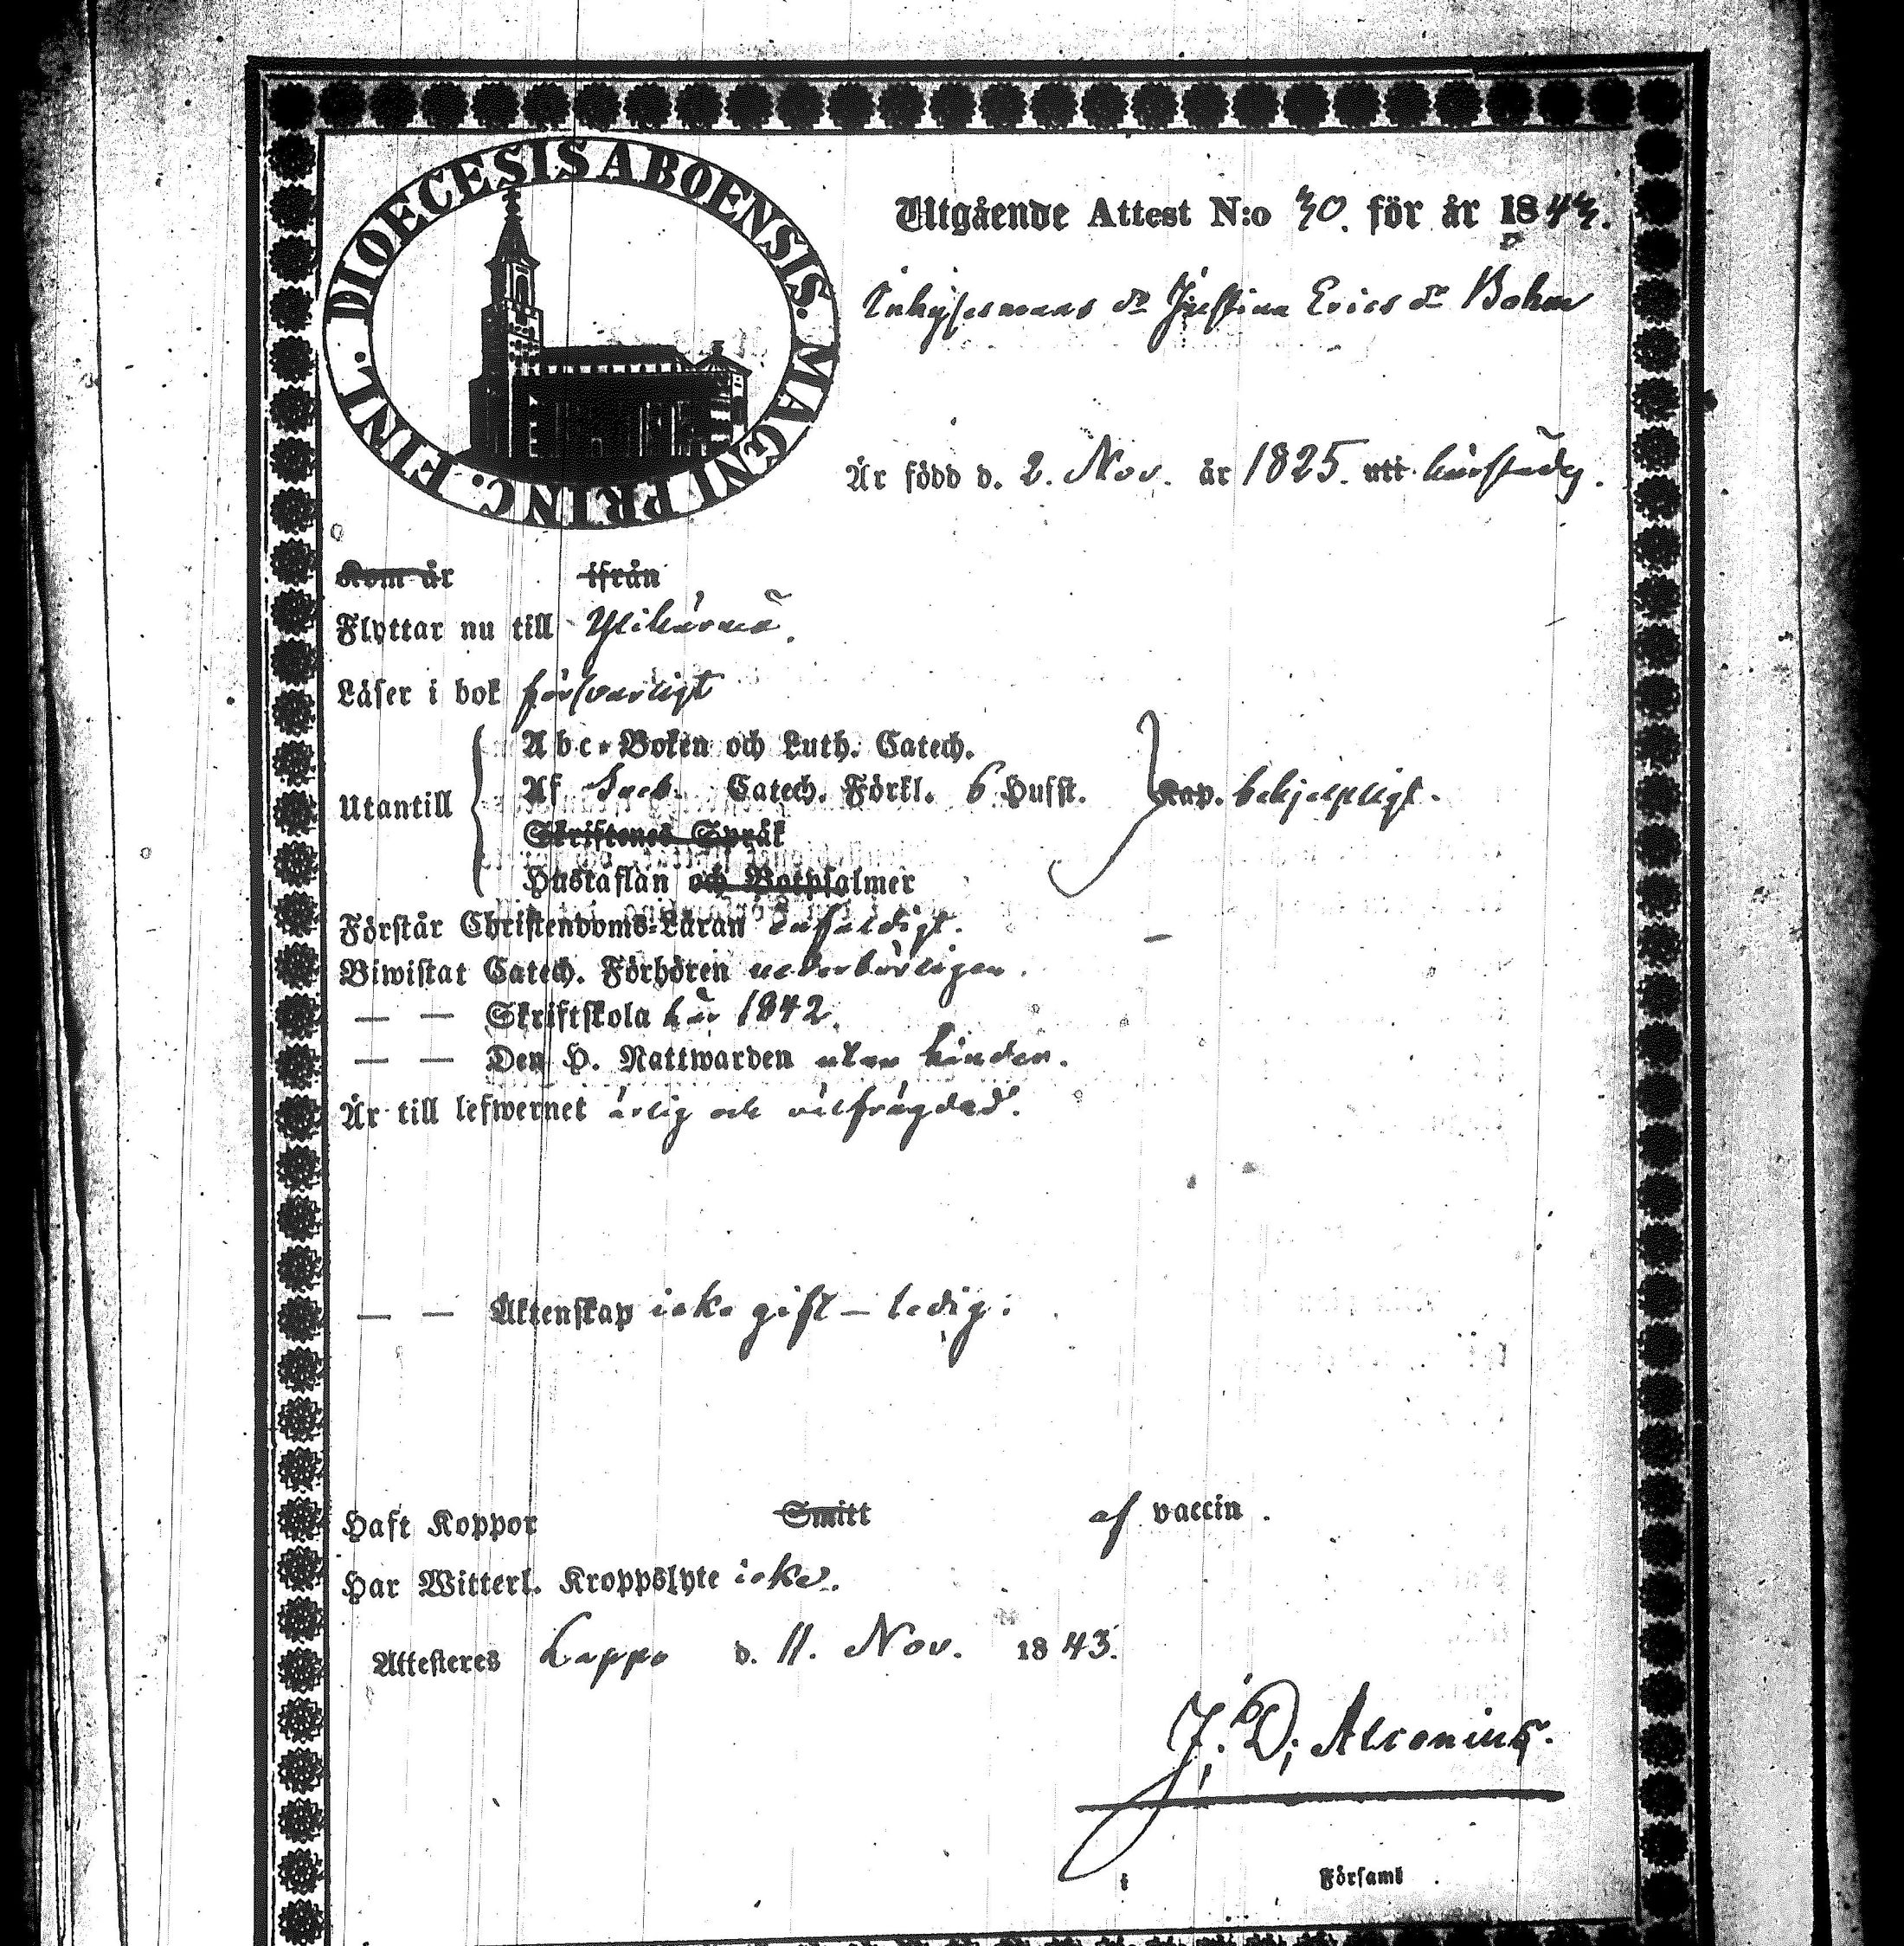 DIOECESIS ABOENSIS. MAGNI PRINC. FINL.
Utgående Attest N:o 30. för år 1843.
Inhysesmans dr Justina Erics dr Bohm
Är född d. 2. Nov. år 1825. uti härstädes.
Kom år ifrån
Flyttar nu till Ylihärmä.
Läser i bok försvarligt
Abc-Boken och Luth. Catech.
Utantill Af Sveb. Catech. Förkl. 6 Husst. Kap. behjelpligt.
Skriftenes Språk
Hustaflan och Botpsalmer
Förstår Christendoms-Läran enfaldigt.
Biwistat Catech. Förhören vederbörligen.
— — Skriftskola här 1842.
— — Den H. Nattwarden utan hinder.
Är till lefwernet ärlig och välfrägdad.
— — Äktenskap icke gift – ledig.
Haft Koppor Smitt af vaccin.
Har Witterl. Kroppslyte icke.
Attesteres Lappo d. 11. Nov. 1843.
J. D. Alcenius.
i Församl.